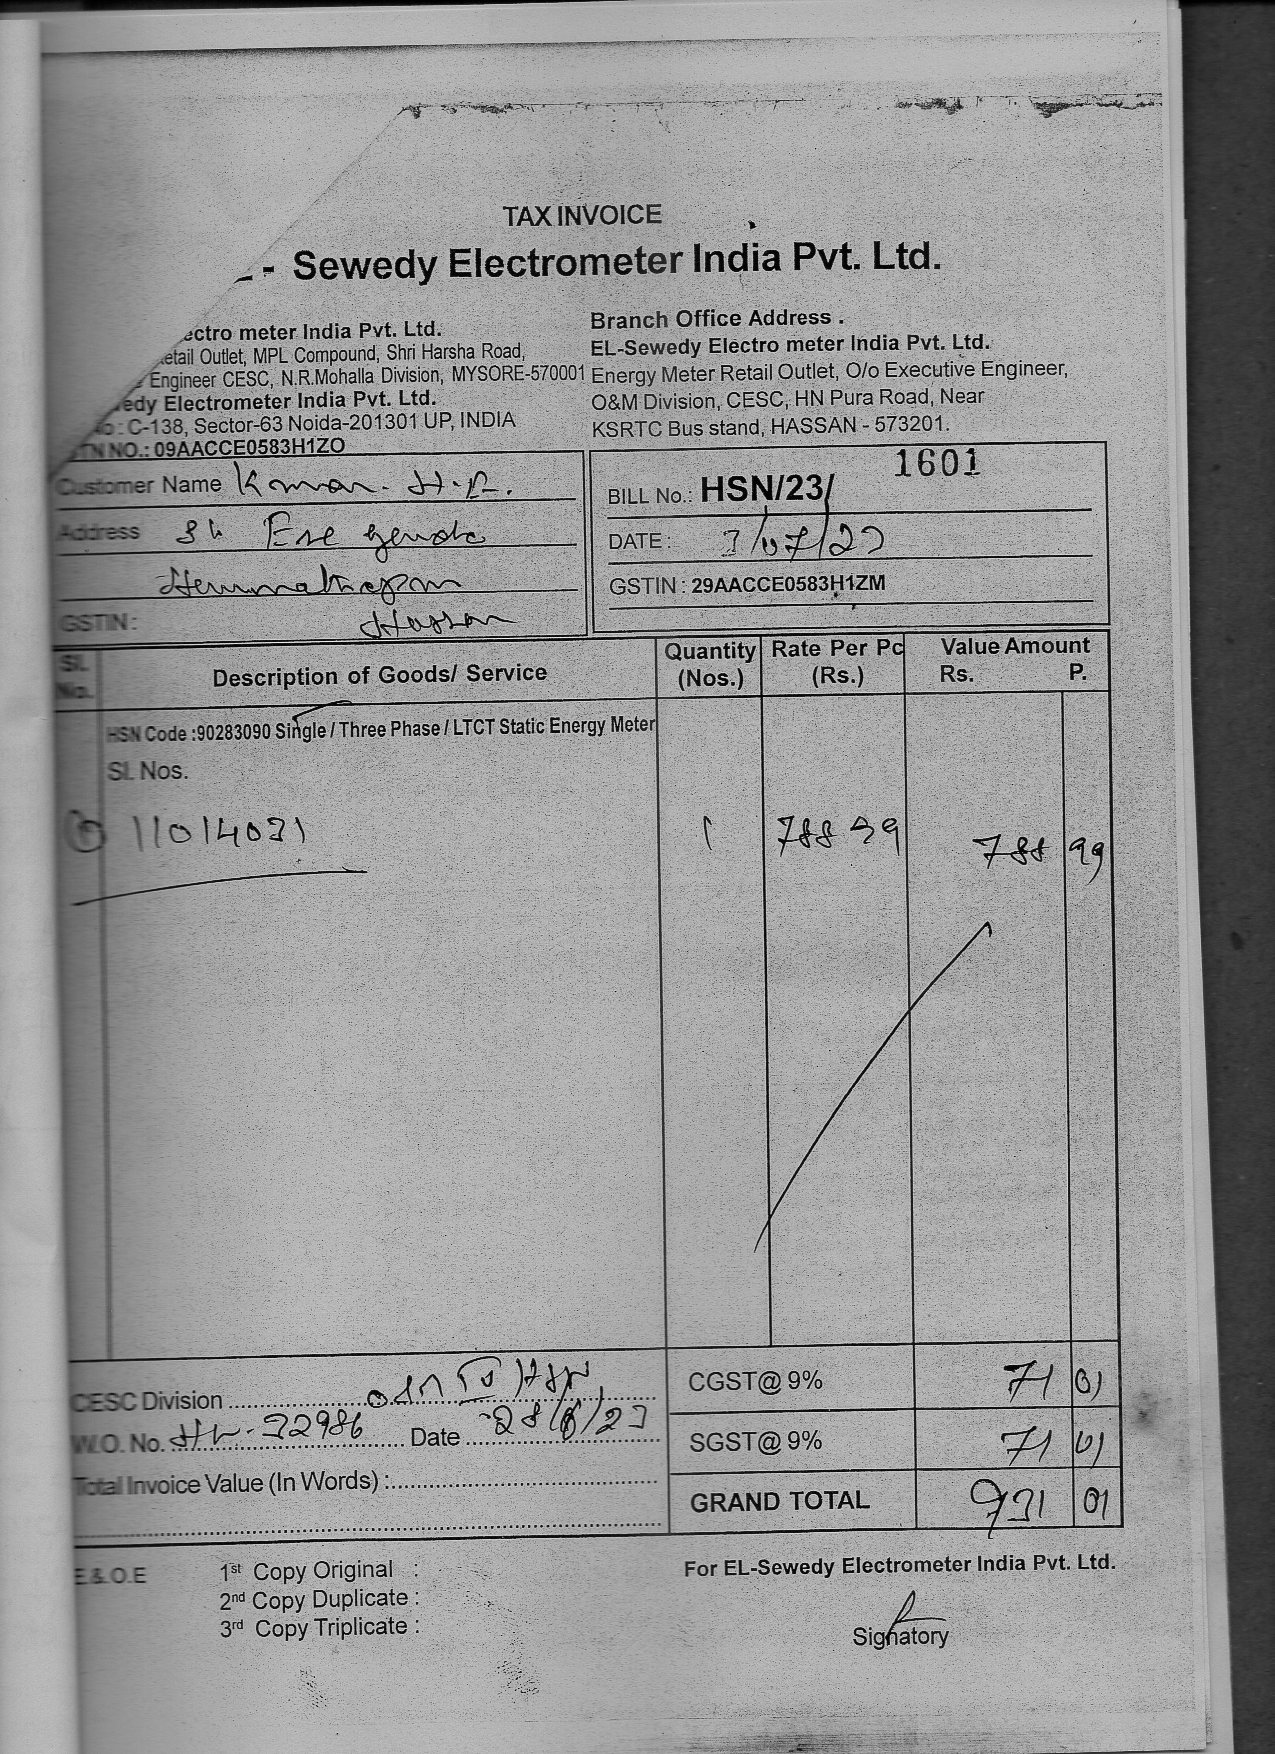 TAX INVOICE
- Sewedy Electrometer India Pvt. Ltd.
ectro meter India Pvt. Ltd.
etail Outlet, MPL Compound, Shri Harsha Road,
Engineer CESC, N.R.Mohalla Division, MYSORE-570001
edy Electrometer India Pvt. Ltd.
: C-138, Sector-63 Noida-201301 UP, INDIA
TN NO.: 09AACCE0583H1ZO
Branch Office Address .
EL-Sewedy Electro meter India Pvt. Ltd.
Energy Meter Retail Outlet, O/o Executive Engineer,
O&M Division, CESC, HN Pura Road, Near
KSRTC Bus stand, HASSAN - 573201.
Customer Name
Address
GSTIN : Hassan
1601
BILL No.: HSN/23/
DATE : 3/07/23
GSTIN : 29AACCE0583H1ZM
Sl. No. Description of Goods/ Service Quantity (Nos.) Rate Per Pc (Rs.) Value Amount Rs. P.
HSN Code :90283090 Single / Three Phase / LTCT Static Energy Meter
Sl. Nos.
11014031 1 788 99 788 99
CESC Division
W.O. No. 32986 Date 28/6/23
Total Invoice Value (In Words) :
CGST@ 9% 71 01
SGST@ 9% 71 01
GRAND TOTAL 931 01
E & O.E
1st Copy Original :
2nd Copy Duplicate :
3rd Copy Triplicate :
For EL-Sewedy Electrometer India Pvt. Ltd.
Signatory